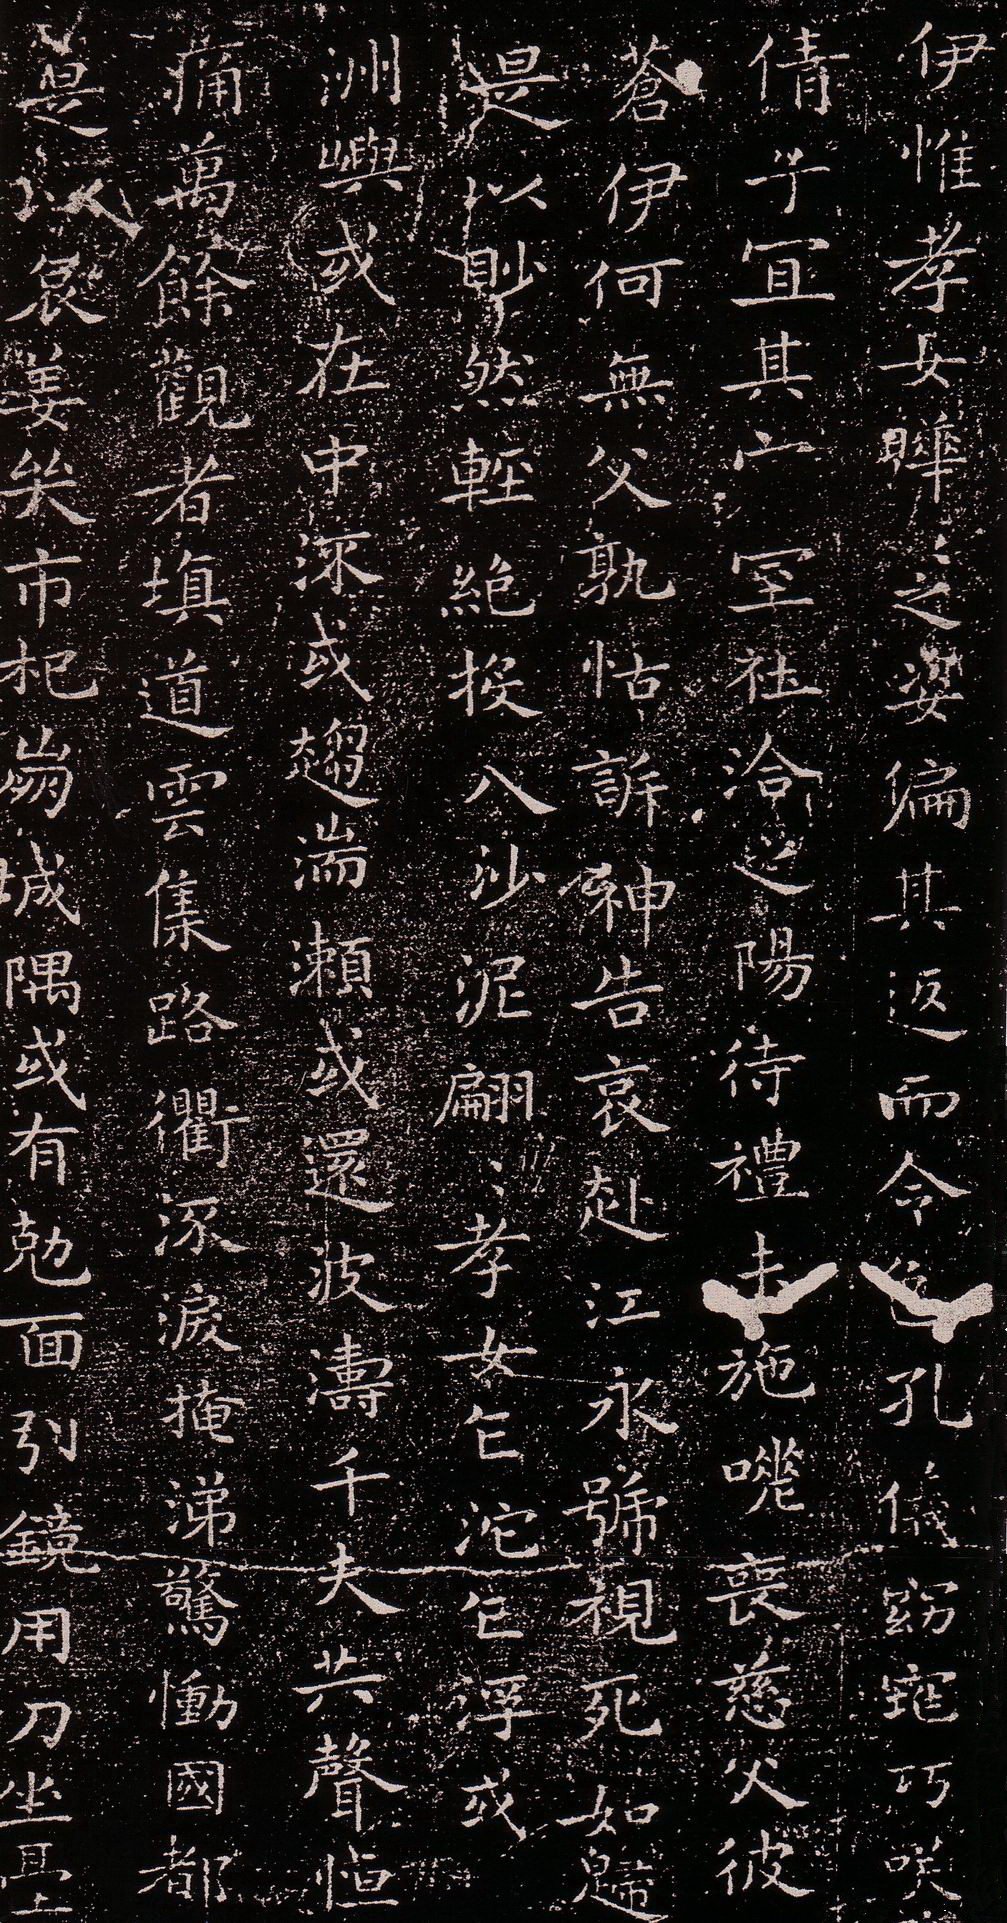 伊惟孝女曄〻之姿偏其返而令色孔儀窈窕巧咲
倩子宜其家室在洽之陽待禮未施嗟喪慈父彼
蒼伊何無父孰怙訴神告哀赴江永號視死如歸
是以眇然輕絕投入沙泥翩〻孝女乍沉乍浮或
洲嶼或在中流或趨湍瀨或還波濤千夫失聲悼
痛萬餘觀者填道雲集路衢泳淚掩涕驚慟國都
是以哀姜哭市杞崩城隅或有剋面引鏡用刀坐臺